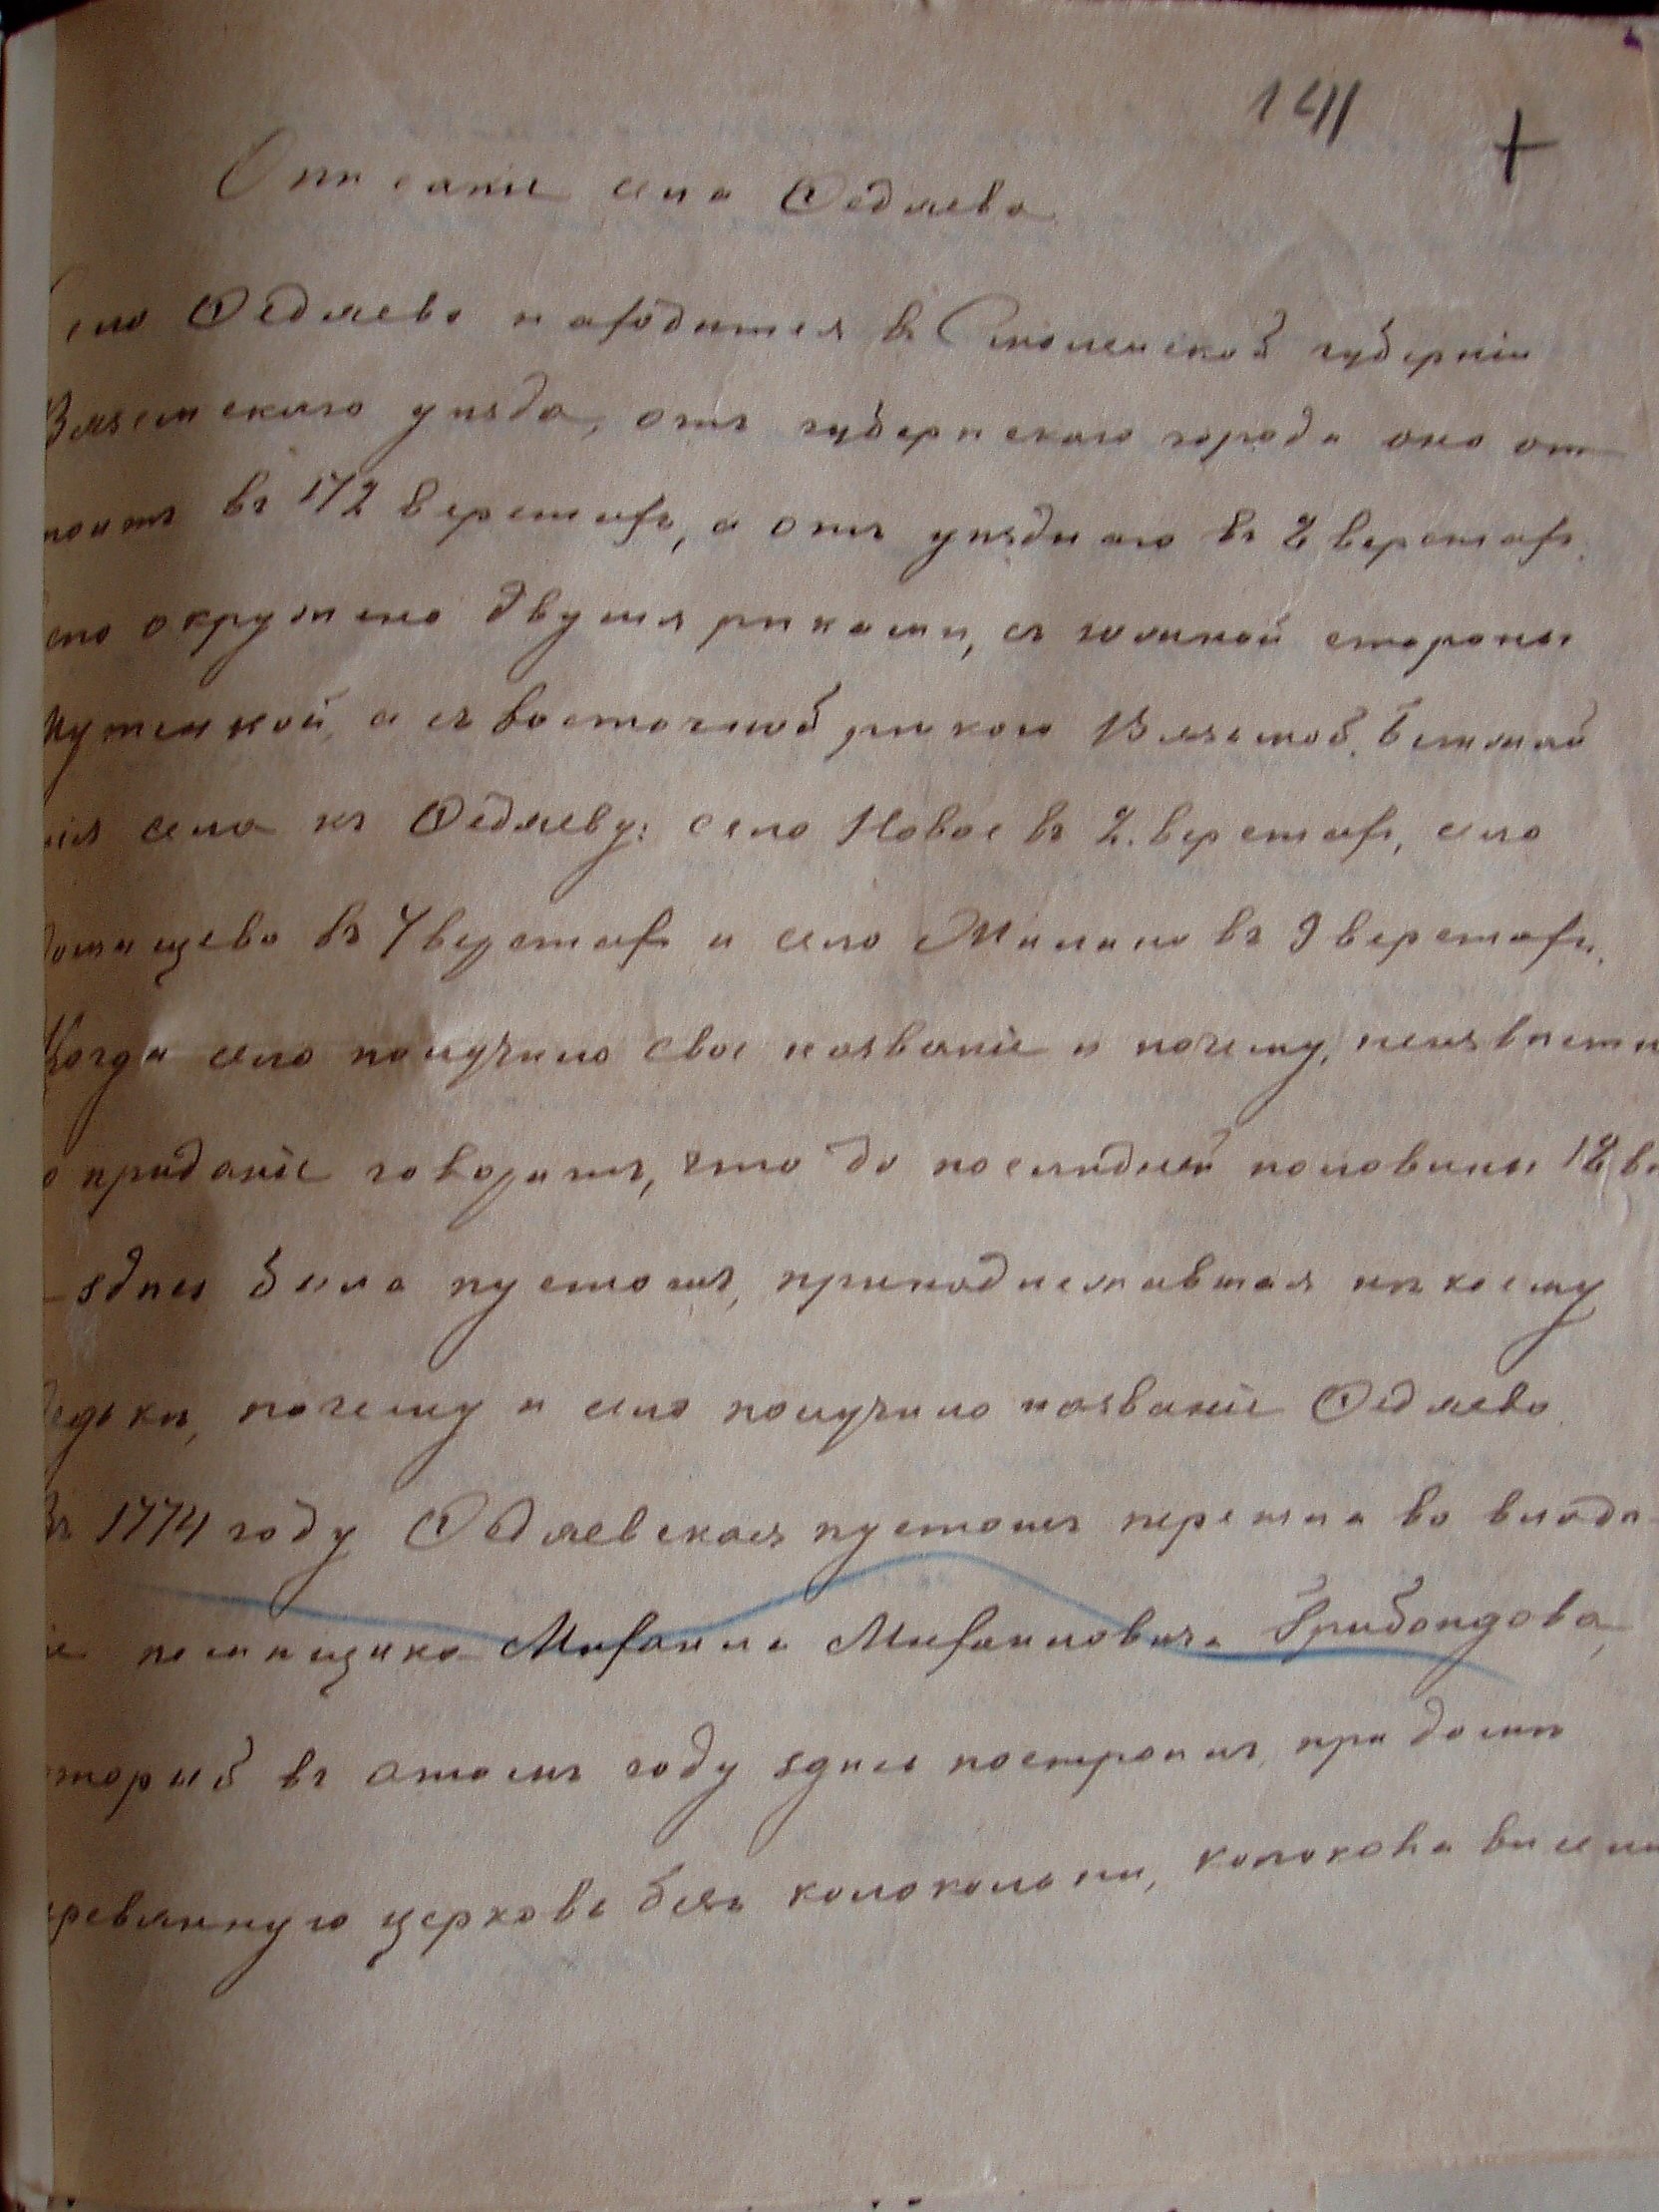 141 +
Описаніе села Ѳедяева
ело Ѳедяево находится въ Смоленской губерніи
Вяземскаго уѣзда, отъ губернскаго города оно от
тоитъ въ 172 верстахъ, а отъ уѣзднаго въ 8 верстахъ.
окружено двумя рѣками, съ южной стороны
а съ восточной рѣкою Вязьмой. Ближай
села къ Ѳедяеву: село Новое въ 2. верстахъ, село
въ 7 верстахъ и село въ 9 верстахъ.
Когда село получило свое названіе и почему, неизвѣстн
преданіе говоритъ, что до послѣдней половины 18 вѣ
здѣсь была пустошь, принадлежавшая нѣкоему
почему и село получило названіе Ѳедяево.
Въ 1774 году Ѳедяевская пустошь перешла во владѣ-
помѣщика Михаила Михаиловича Грибоѣдова,
оторый въ этомъ году здѣсь построилъ при домѣ
ревянную церковь безъ колокольни, колокола висѣли